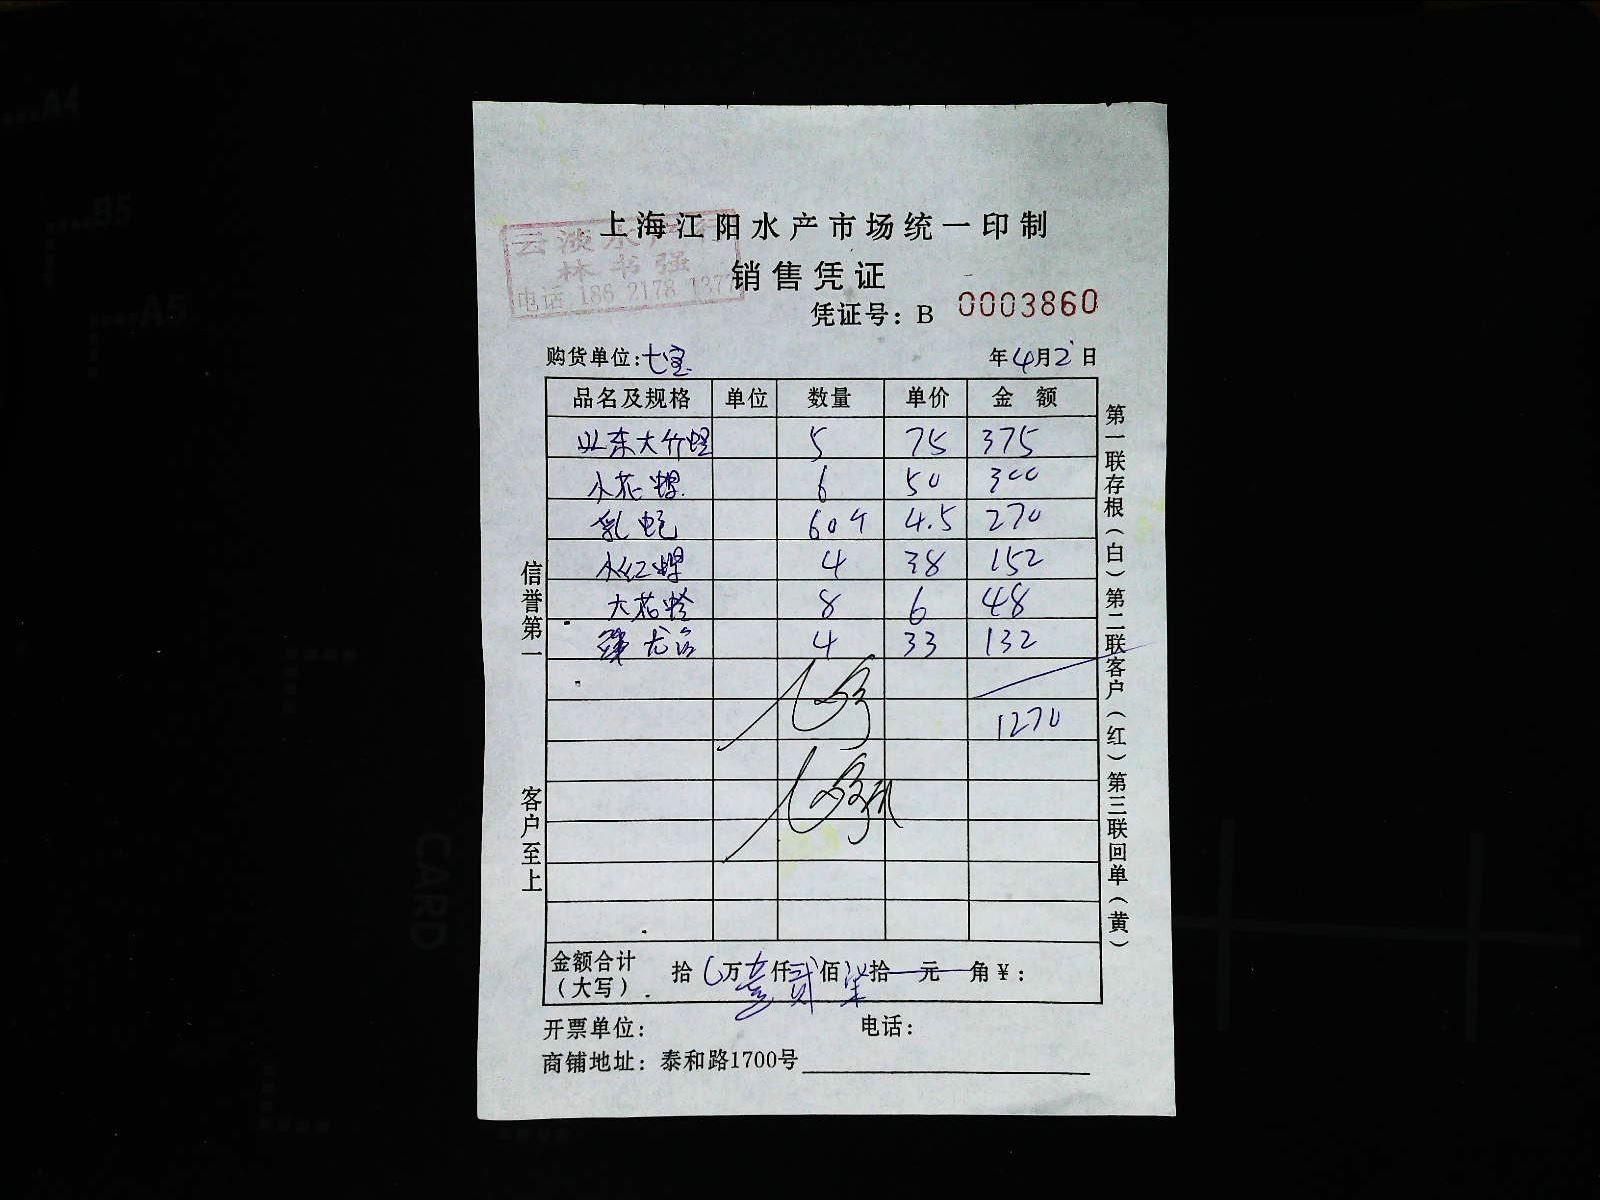 上海江阳水产市场统一印制
云淡水产行
林书强
电话 186 2178 1377
销售凭证
凭证号：B 0003860
购货单位：七宝
年4月2日
品名及规格 单位 数量 单价 金额
山东大竹蛏 5 75 375
小花螺 6 50 300
乳鲍 60个 4.5 270
小红螺 4 38 152
大花蛤 8 6 48
4 33 132
1270
金额合计（大写） 拾万壹仟贰佰柒拾元角￥：
开票单位： 电话：
商铺地址：泰和路1700号
信誉第一
客户至上
第一联存根（白）第二联客户（红）第三联回单（黄）